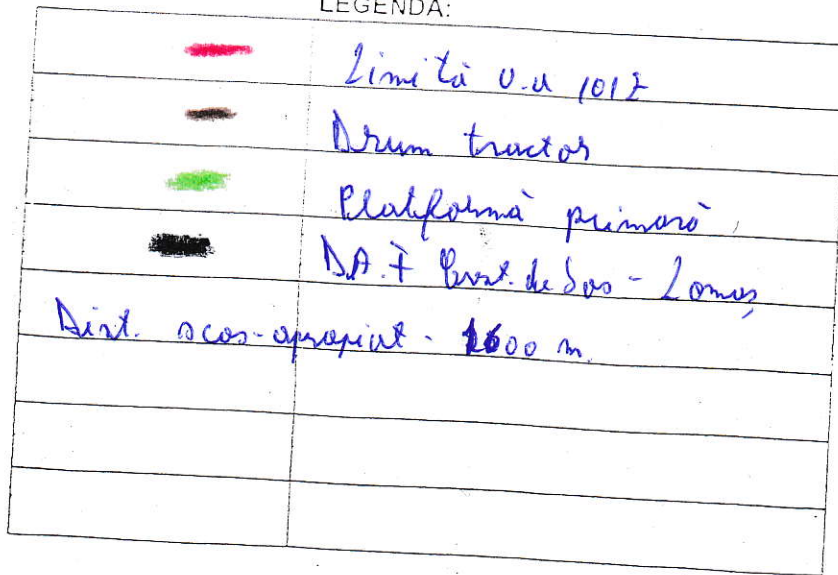 LEGENDA:
Limită u.a 101E
Drum tractor
Platformă primară
D.A.F de Jos - Lomaș
Dist. scos-apropiat - 1600 m.